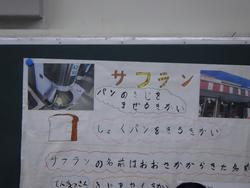 サフラン
パンのきじを
まぜるきかい
しょくパンをきるきかい
サフランの名前はおおさかからきた名前